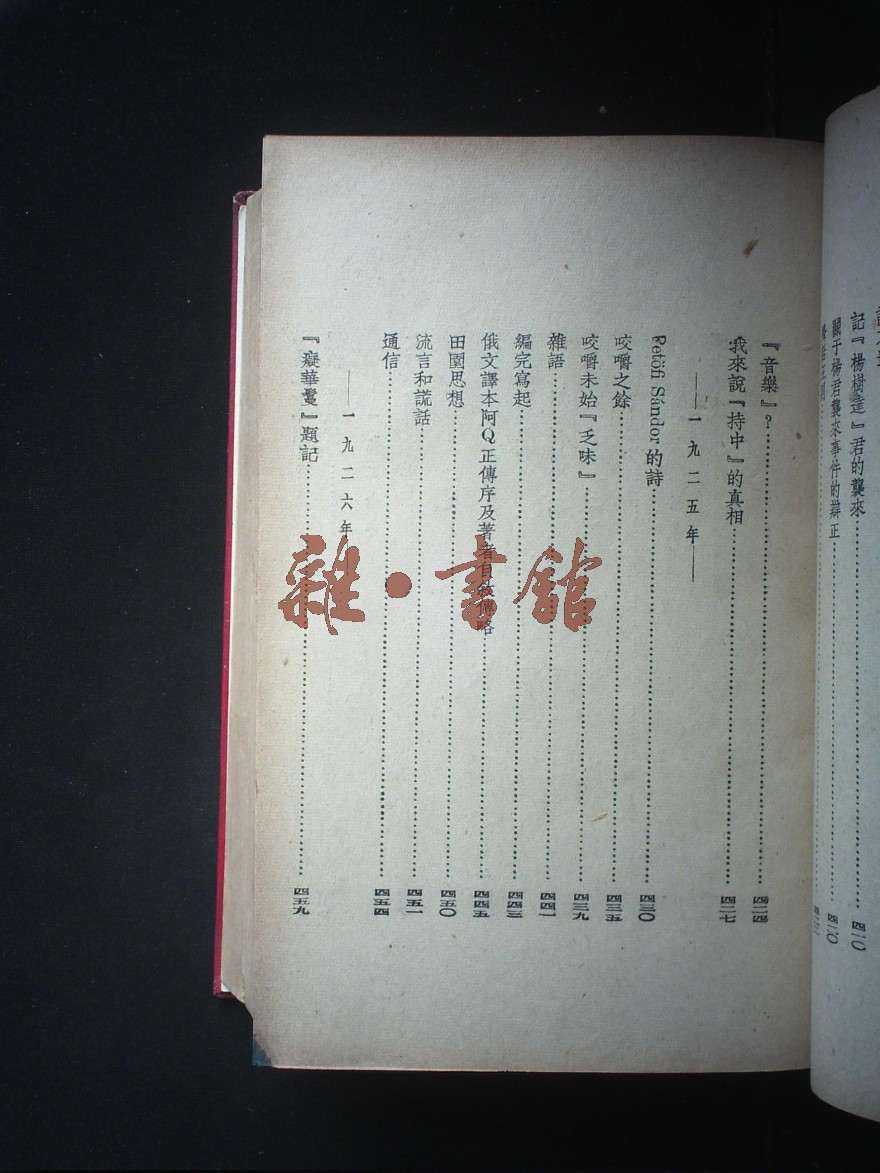 記『楊樹達』君的襲來……四一〇
關于楊君襲來事件的辯正……四二〇
『音樂』？……四二四
我來說『持中』的真相……四二七
——一九二五年——
Petöfi Sándor 的詩……四三〇
咬嚼之餘……四三五
咬嚼未始『乏味』……四三九
雜語……四四一
編完寫起……四四三
俄文譯本阿Q正傳序及著者自敍傳略……四四五
田園思想……四五〇
流言和謊話……四五一
通信……四五四
——一九二六年
『癡華鬘』題記……四五九
雜·書館